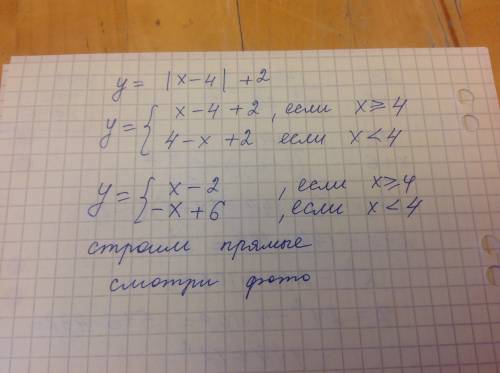 y = |x-4| +2
y = { x-4+2, если x ≥ 4
4-x+2 если x < 4
y = { x-2, если x ≥ 4
-x+6, если x < 4
строим прямые
смотри фото